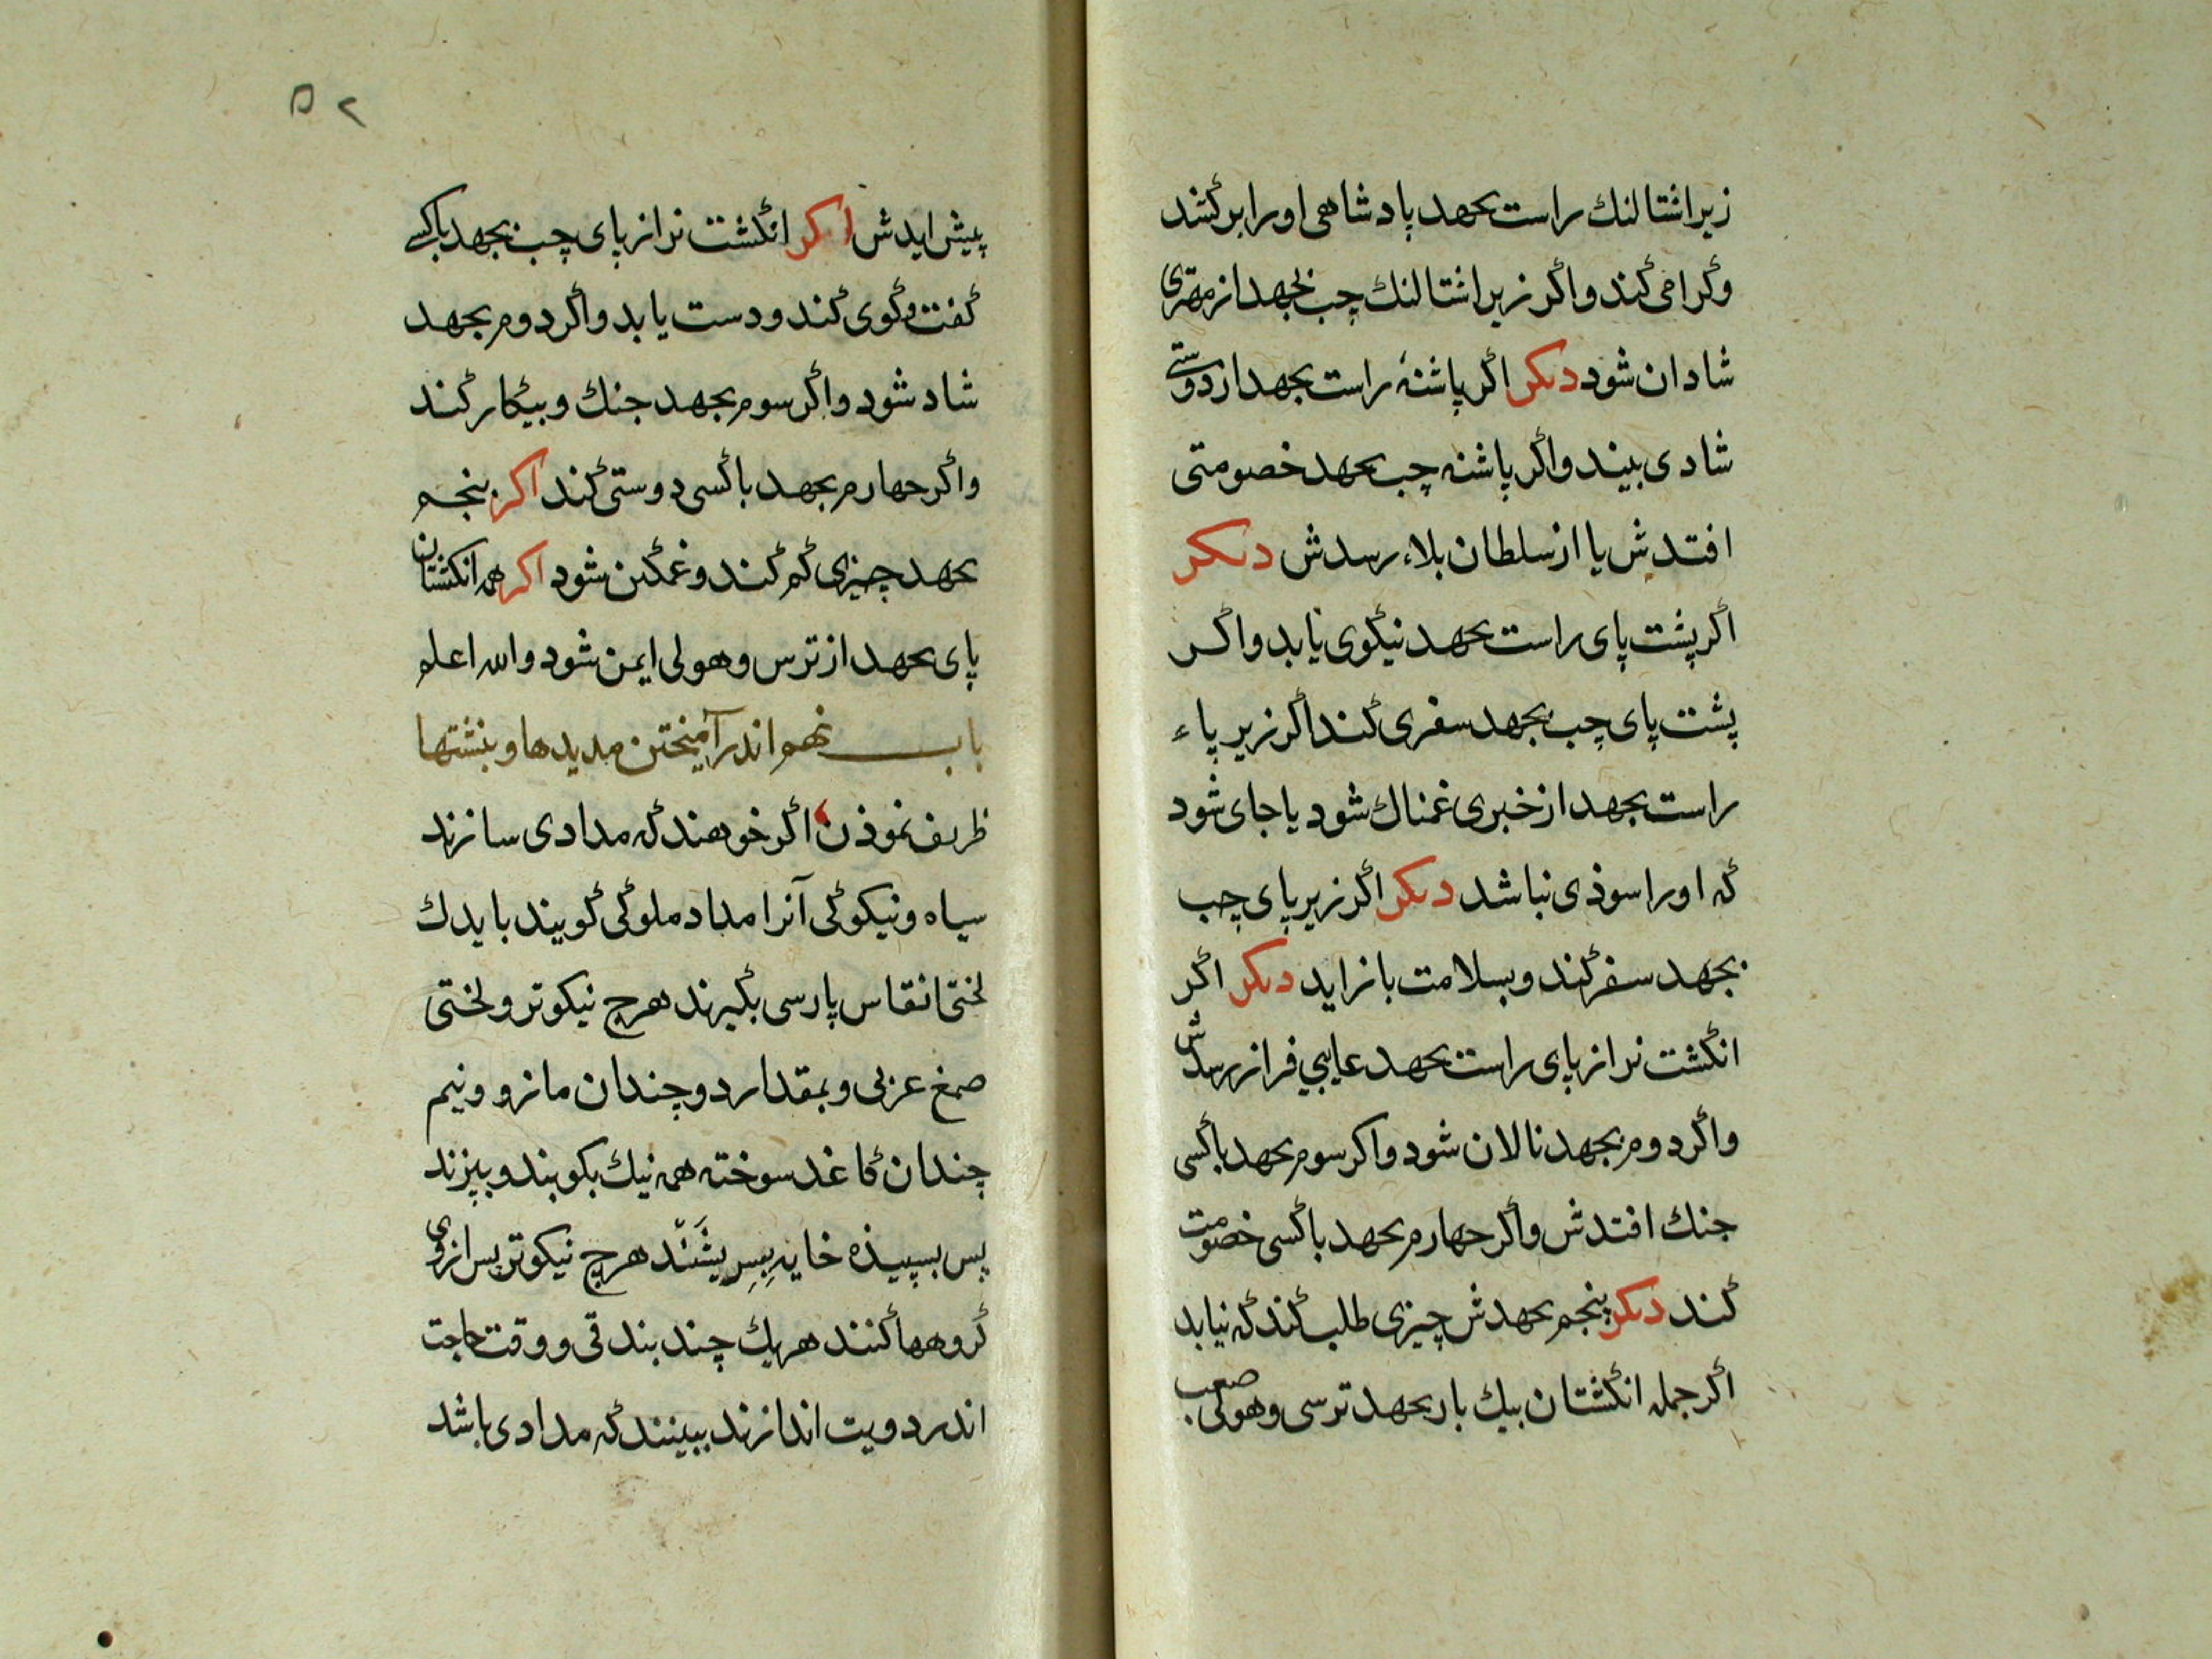 زیر اشتالنك راست بجهد پادشاهی او را برکشد
وکرامی کند واکر زیر اشتالنك چب بجهد از مهتری
شادان شود دیکر اکر پاشنهٔ راست بجهد از دوستی
شادی بیند واکر پاشنه چب بجهد خصومتی
افتدش یا از سلطان بلاء رسدش دیکر
اکر پشت پای راست بجهد نیکوی یابد واکر
پشت پای چب بجهد سفری کند اکر زیر پاء
راست بجهد از خبری غمناك شود یا جای شود
که او را سوذی نباشد دیکر اکر زیر پای چب
بجهد سفر کند وبسلامت باز اید دیکر اکر
انکشت نر از پای راست بجهد عایبی فراز رسدش
واکر دوم بجهد نالان شود واکر سوم بجهد باکسی
جنك افتدش واکر جهارم بجهد باکسی خصومت
کند دیکر پنجم بجهدش چیزی طلب کند که نیابد
اکر جمله انکشتان بیك بار بجهد ترسی وهولی صعب
۵۲
پیش ایدش اکر انکشت نر از پای چب بجهد باکسی
کفت وکوی کند ودست یابد واکر دوم بجهد
شاد شود واکر سوم بجهد جنك وبیکار کند
واکر جهارم بجهد باکسی دوستی کند اکر پنجم
بجهد چیزی کم کند وغمکین شود اکر همه انکشتان
پای بجهد از ترس وهولی ایمن شود والله اعلم
باب نهم اندر آمیختن مدیدها وبنشتها
ظریف نموذن اکر خوهند که مدادی سازند
سیاه ونیکو کی آنرا مداد ملوکی کویند باید ك
لختی انقاس پارسی بکیرند هرچ نیکوتر ولختی
صمغ عربی وبمقدار دو چندان مازو ونیم
چندان کاغد سوخته همه نیك بکوبند وبپزند
پس بسپیذه خایه بِسِریشَنْد هرچ نیکوتر پس از وی
کروهها کنند هر یك چند بندقی ووقت حاجت
اندر دویت اندازند ببینند که مدادی باشد